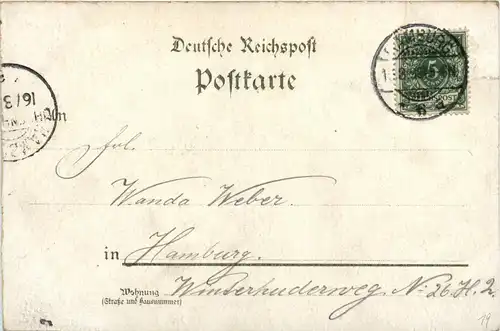 Deutsche Reichspost
Postkarte
HAMBURG
5
16/3
An
Frl.
Wanda Weber.
in Hamburg.
Wohnung
(Straße und Hausnummer)
Winterhuderweg No 26. H. 2.